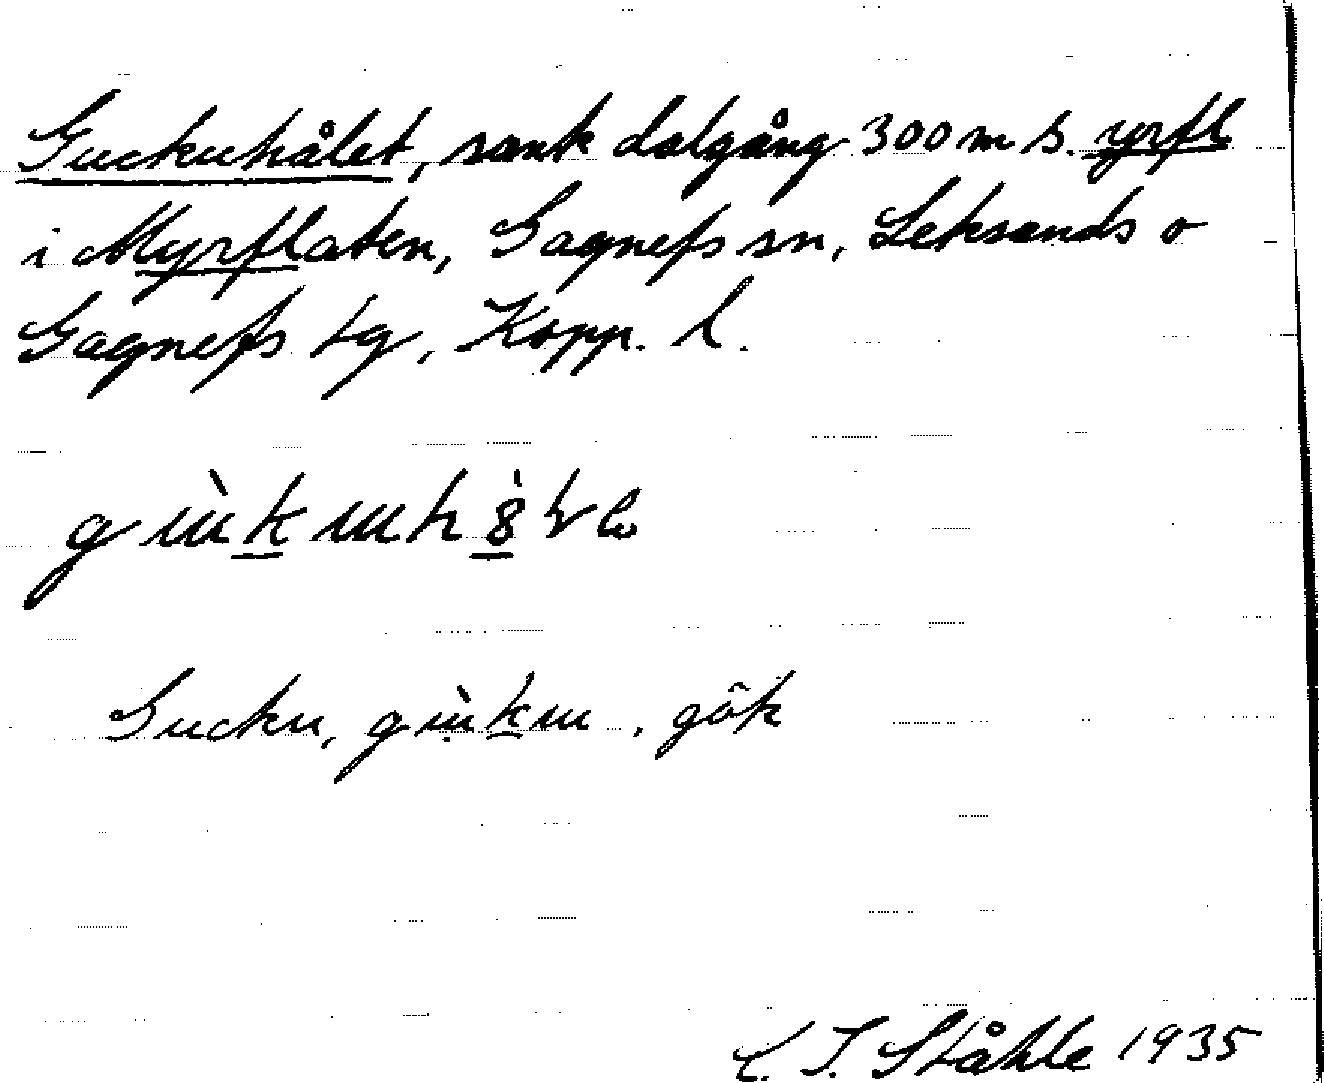 Guckuhålet, sank dalgång 300 m S. yrfl
i Myrflaten, Gagnefs sn, Leksands o
Gagnefs tg, Kopp. l.
Gucku, , gök
C. I. Ståhle 1935